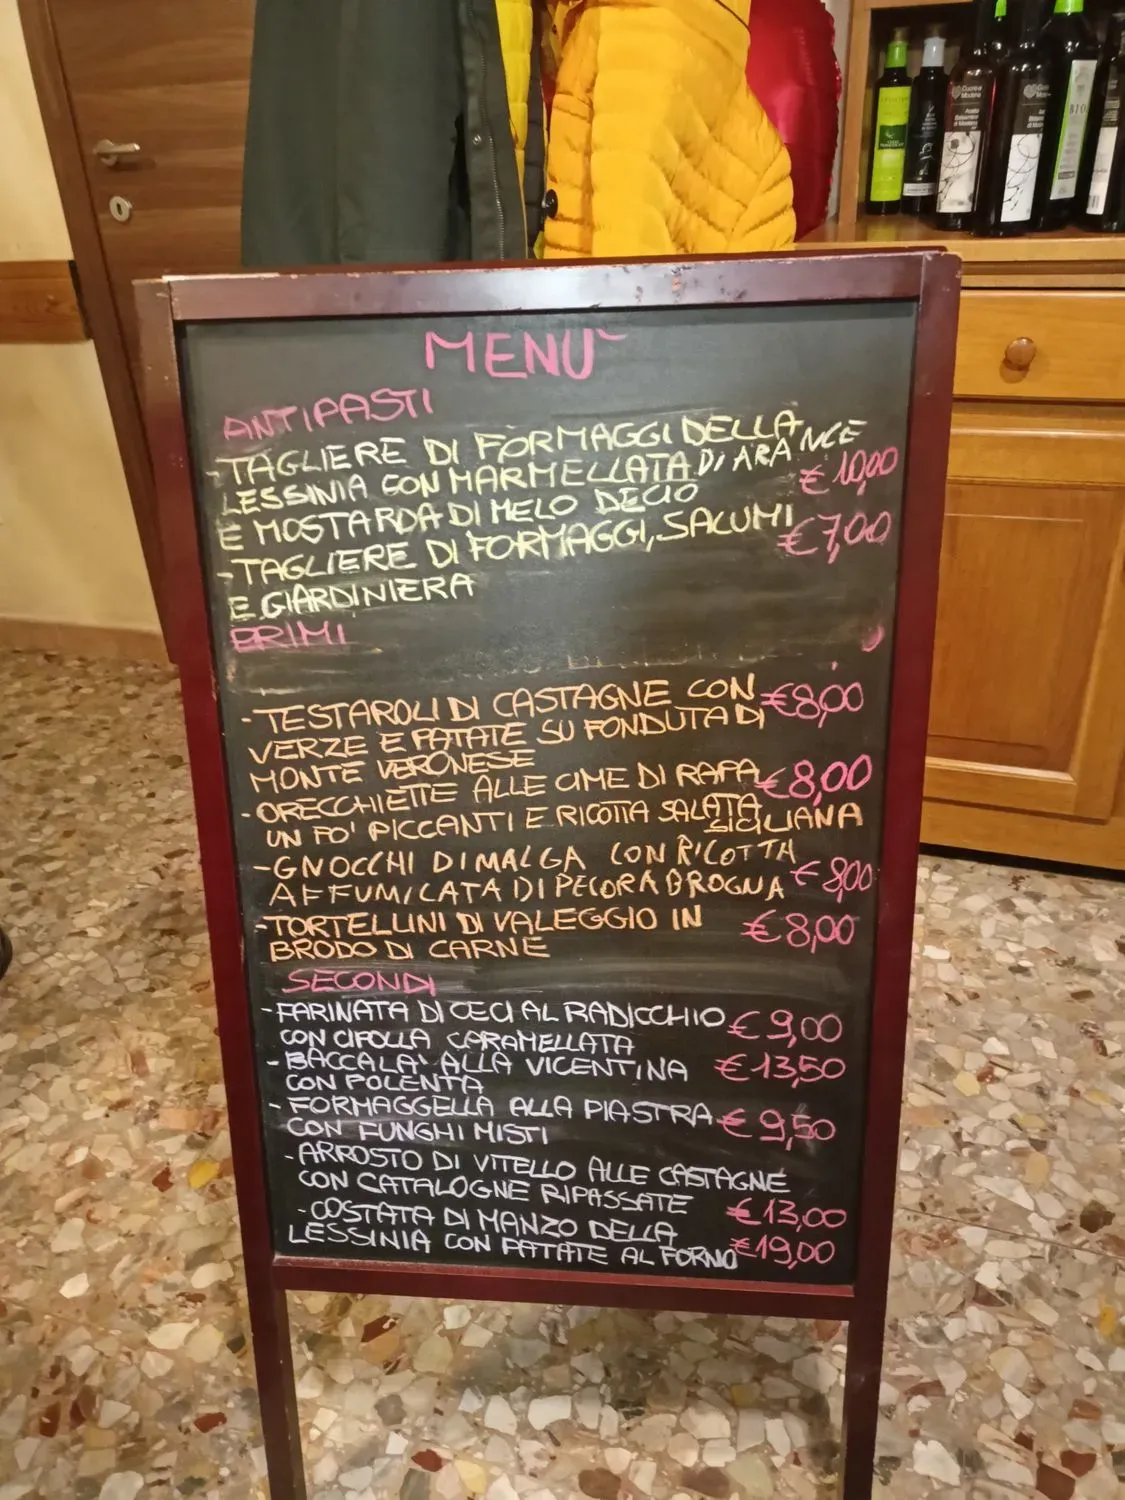 MENU`
ANTIPASTI
-TAGLIERE DI FORMAGGI DELLA
LESSINIA CON MARMELLATA DI ARANCE
€ 10,00
E MOSTARDA DI MELO DECIO
-TAGLIERE DI FORMAGGI, SALUMI €7,00
E GIARDINIERA
PRIMI
-TESTAROLI DI CASTAGNE CON €8,00
VERZE E PATATE SU FONDUTA DI
MONTE VERONESE
-ORECCHIETTE ALLE CIME DI RAPA €8,00
UN PO' PICCANTI E RICOTTA SALATA
SICILIANA
-GNOCCHI DI MALGA CON RICOTTA
AFFUMICATA DI PECORA BROGNA € 8,00
-TORTELLINI DI VALEGGIO IN €8,00
BRODO DI CARNE
SECONDI
-FARINATA DI CECI AL RADICCHIO € 9,00
CON CIPOLLA CARAMELLATA
-BACCALA` ALLA VICENTINA €13,50
CON POLENTA
-FORMAGGELLA ALLA PIASTRA € 9,50
CON FUNGHI MISTI
-ARROSTO DI VITELLO ALLE CASTAGNE
CON CATALOGNE RIPASSATE €13,00
-COSTATA DI MANZO DELLA
LESSINIA CON PATATE AL FORNO €19,00
Cuore di
Modena
Aceto
Balsamico
di Modena
BIO